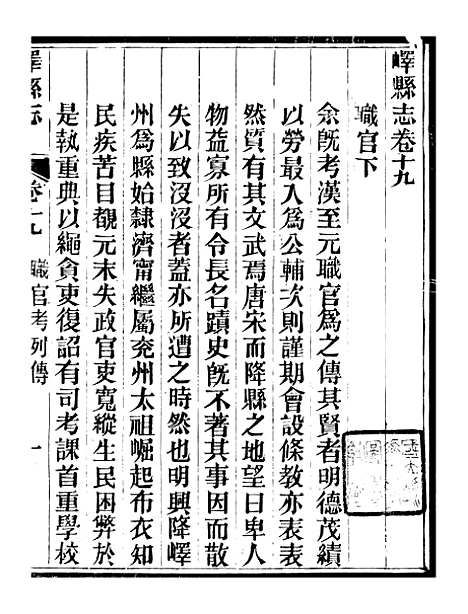 嶧縣志卷十九
職官下
余旣考漢至元職官爲之傳其賢者明德茂績
以勞最入爲公輔次則謹期會設條教亦表表
然質有其文武焉唐宋而降縣之地望日卑人
物益寡所有令長名蹟史旣不著其事因而散
失以致沒沒者蓋亦所遭之時然也明興降嶧
州爲縣始隸濟甯繼屬兖州太祖崛起布衣知
民疾苦目覩元末失政官吏寬縱生民困弊於
是執重典以繩貪吏復詔有司考課首重學校
嶧縣志
卷十九
職官考列傳
一